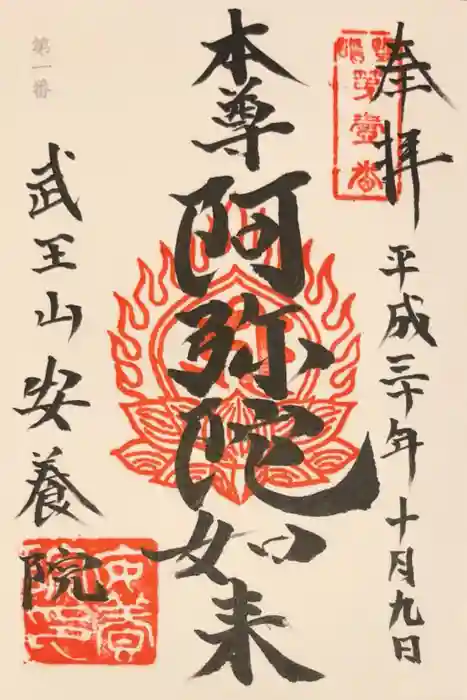 奉拝
平成三十年十月九日
本尊阿弥陀如来
第一番
武王山安養院